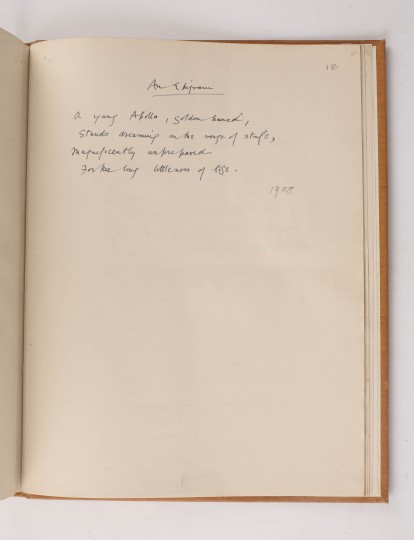 18
An Epigram
A young Apollo, golden haired,
Stands dreaming on the verge of strife,
Magnificently unprepared
For the long littleness of life.
1908